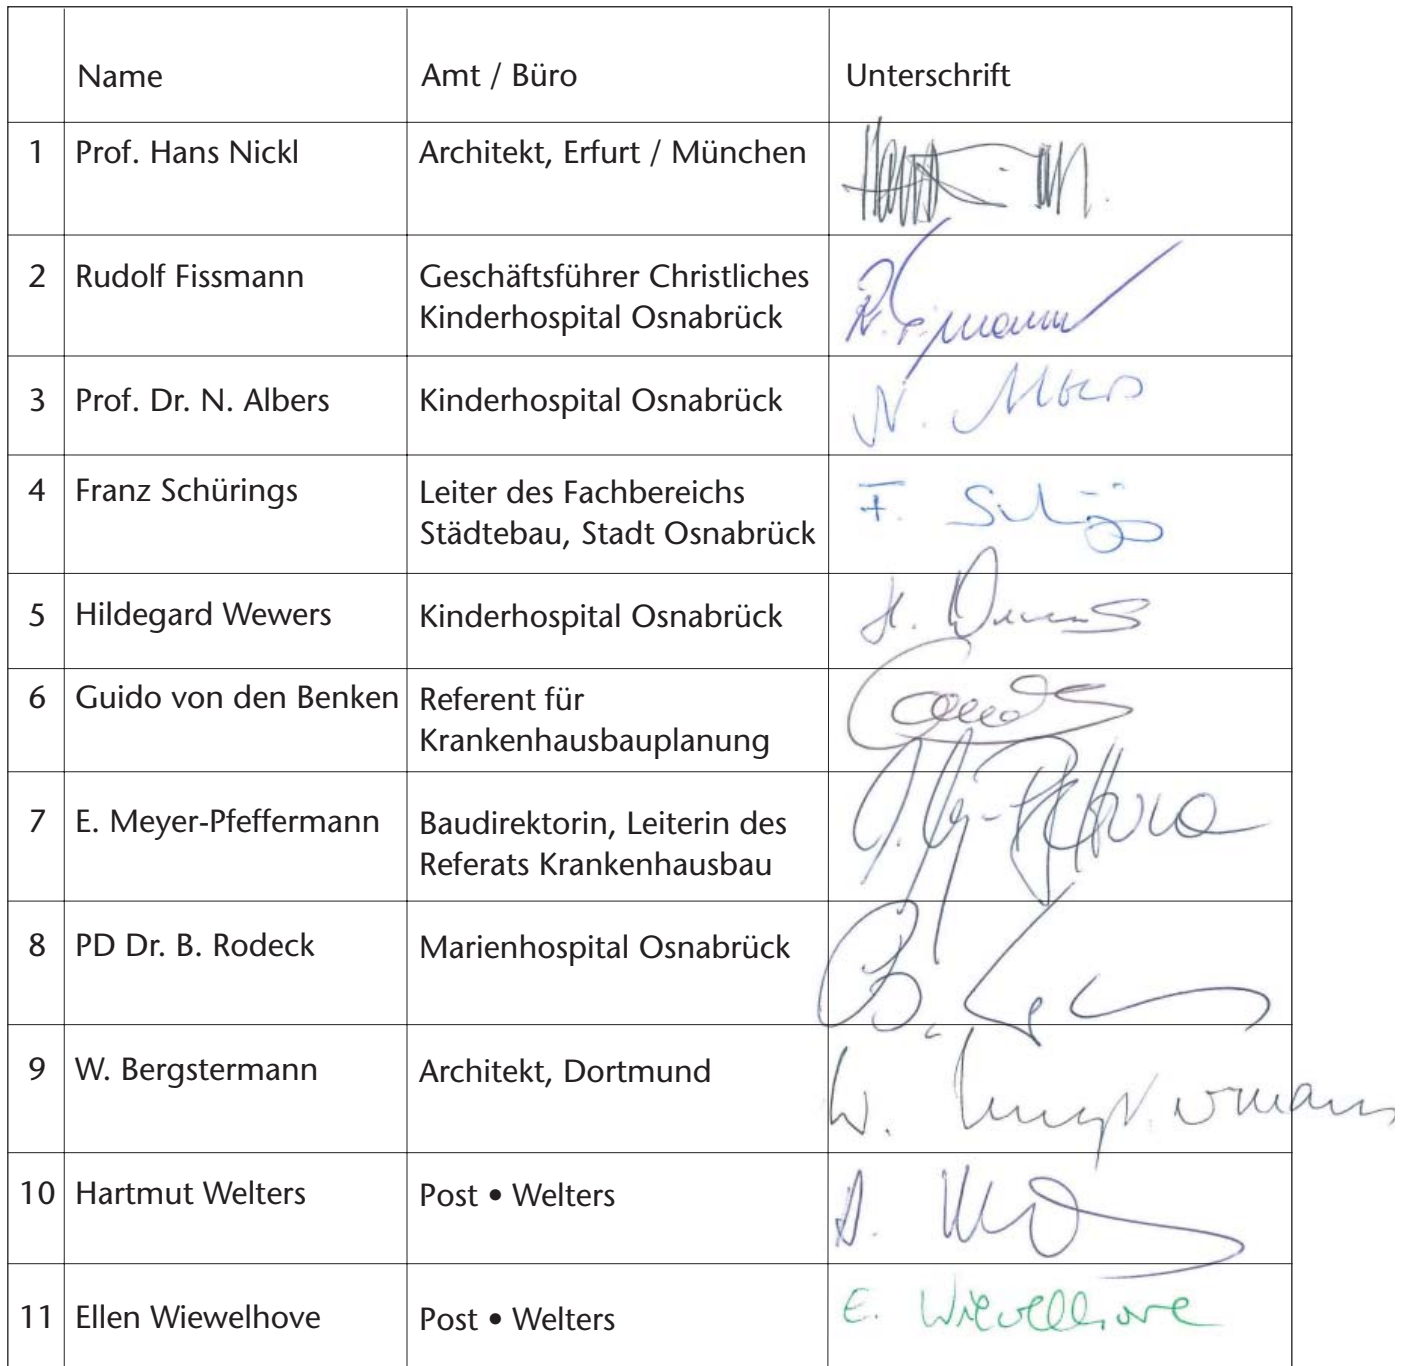 Name Amt / Büro Unterschrift
1 Prof. Hans Nickl Architekt, Erfurt / München
2 Rudolf Fissmann Geschäftsführer Christliches
Kinderhospital Osnabrück
3 Prof. Dr. N. Albers Kinderhospital Osnabrück N. Albers
4 Franz Schürings Leiter des Fachbereichs
Städtebau, Stadt Osnabrück
5 Hildegard Wewers Kinderhospital Osnabrück
6 Guido von den Benken Referent für
Krankenhausbauplanung
7 E. Meyer-Pfeffermann Baudirektorin, Leiterin des
Referats Krankenhausbau
8 PD Dr. B. Rodeck Marienhospital Osnabrück
9 W. Bergstermann Architekt, Dortmund
10 Hartmut Welters Post • Welters
11 Ellen Wiewelhove Post • Welters E. Wiewelhove